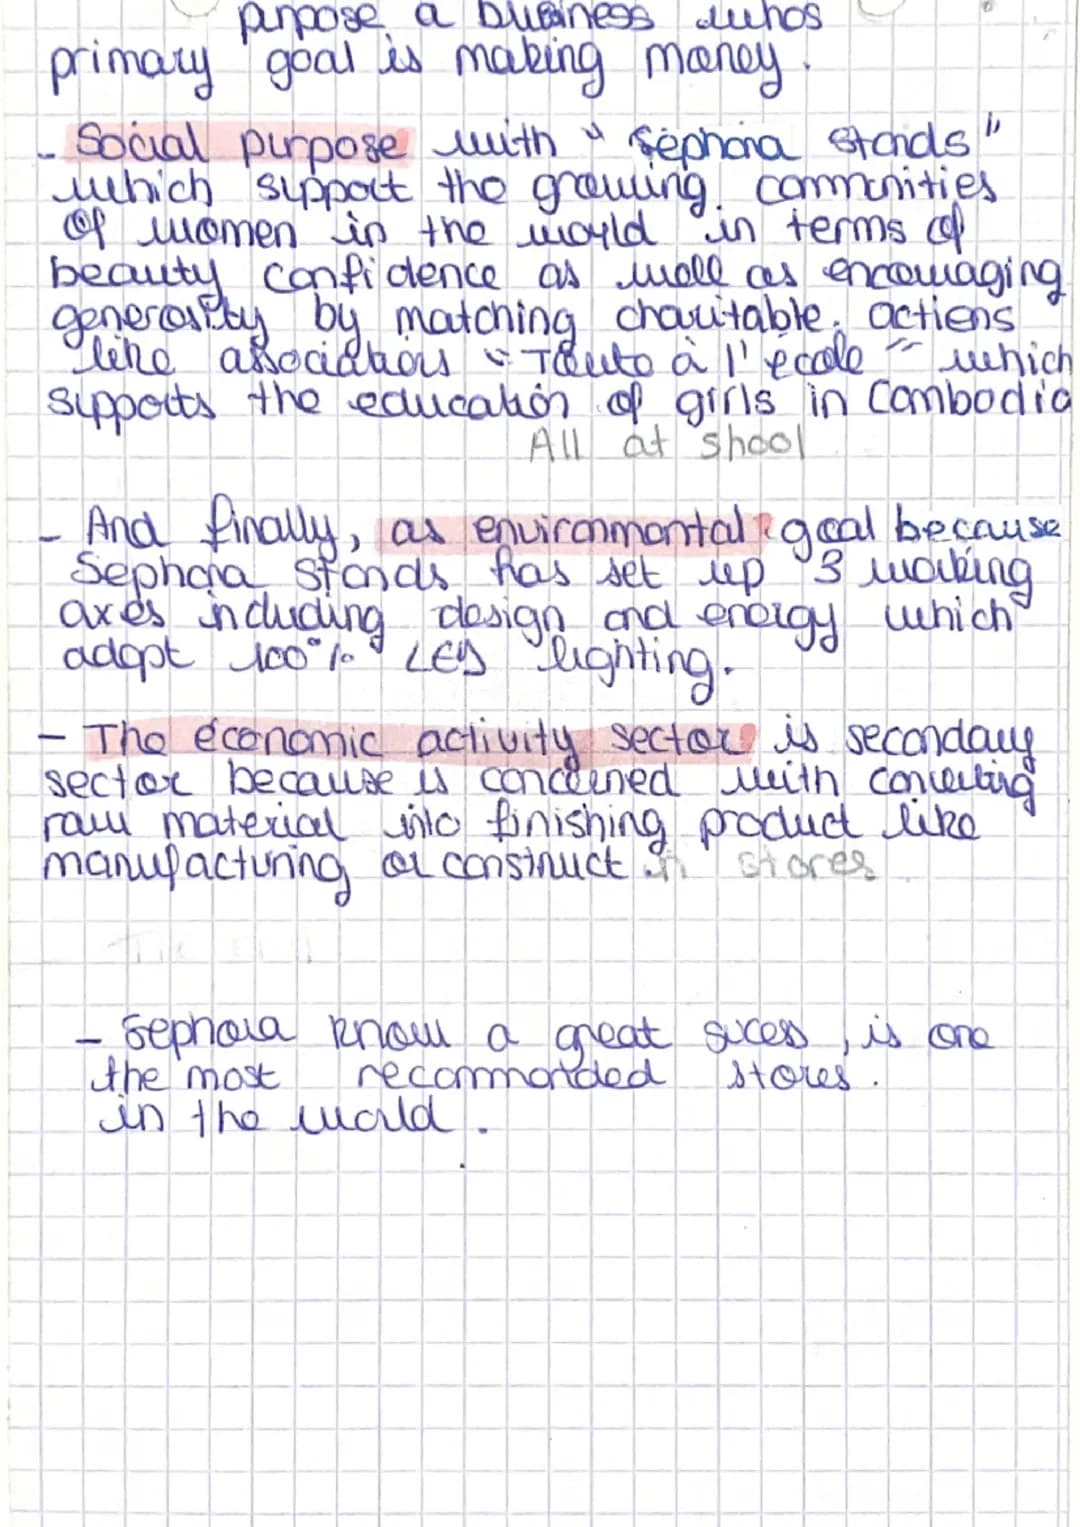 purpose a business whos
primary goal is making money.
- Social purpose with " Sephora Stands "
which support the growing communities
of women in the world in terms of
beauty confidence as well as encouraging
generosity by matching charitable actions
like associations " Toute à l'école " which
supports the education of girls in Cambodia
All at shool
- And finally, as environmental goal because
Sephora Stands has set up 3 working
axes including design and energy which
adopt 100% LED lighting.
- The économic activity sector is secondary
sector because is concerned with converting
raw material into finishing product like
manufacturing or construct in stores
- Sephora know a great sucess, is one
the most recommanded stores.
in the world.